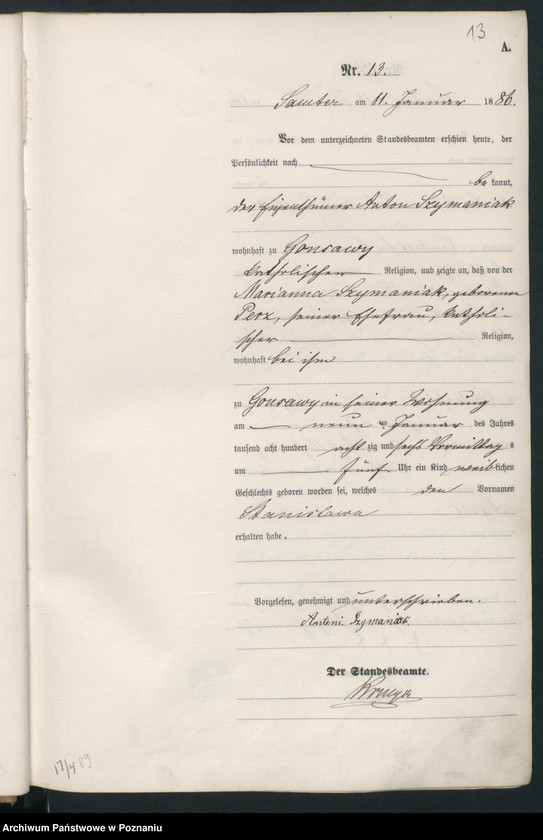 13
A.
Nr. 13.
Samter am 11. Januar 1886.
Vor dem unterzeichneten Standesbeamten erschien heute, der
Persönlichkeit nach
be kannt,
der Eigenthümer Anton Szymaniak
wohnhaft zu Gonsawy
katholischer Religion, und zeigte an, daß von der
Marianna Szymaniak, geborenen
Perz, seiner Ehefrau, katholi-
scher Religion,
wohnhaft bei ihm
zu Gonsawy in seiner Wohnung
am neun ten Januar des Jahres
tausend acht hundert acht zig und sechs Vormittag s
um fünf Uhr ein Kind weib lichen
Geschlechts geboren worden sei, welches den Vornamen
Stanislawa
erhalten habe.
Vorgelesen, genehmigt und unterschrieben.
Antoni Szymaniak.
Der Standesbeamte.
17/4 89
Archiwum Państwowe w Poznaniu